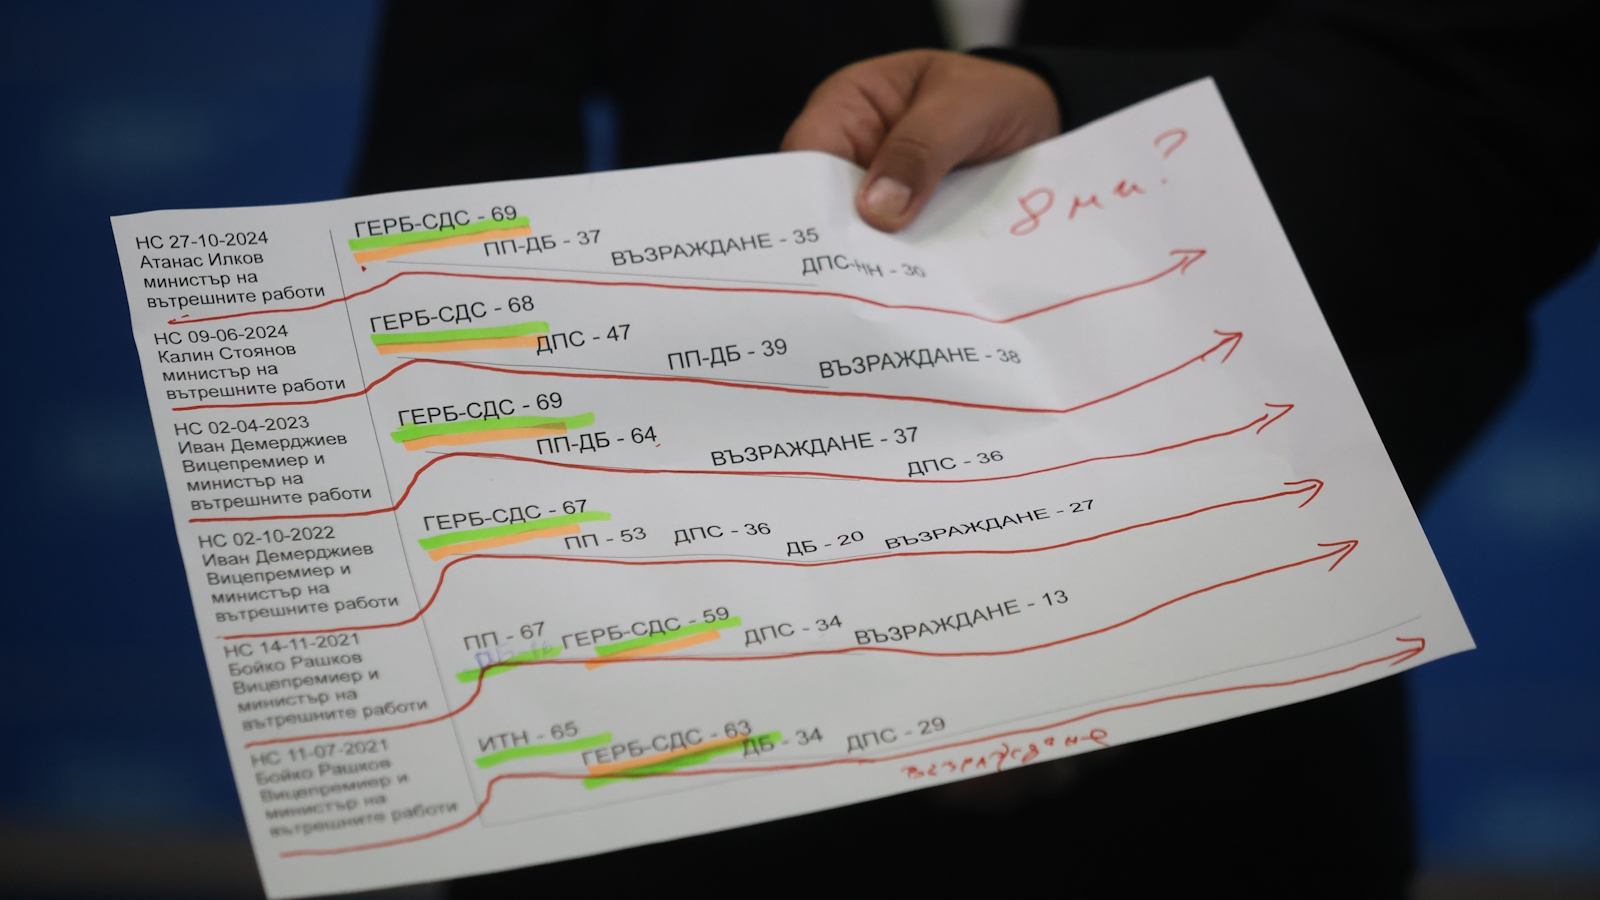 8 ми?
НС 27-10-2024
Атанас Илков
министър на
вътрешните работи
ГЕРБ-СДС - 69
ПП-ДБ - 37
ВЪЗРАЖДАНЕ - 35
ДПС-НН - 30
НС 09-06-2024
Калин Стоянов
министър на
вътрешните работи
ГЕРБ-СДС - 68
ДПС - 47
ПП-ДБ - 39
ВЪЗРАЖДАНЕ - 38
НС 02-04-2023
Иван Демерджиев
Вицепремиер и
министър на
вътрешните работи
ГЕРБ-СДС - 69
ПП-ДБ - 64
ВЪЗРАЖДАНЕ - 37
ДПС - 36
НС 02-10-2022
Иван Демерджиев
Вицепремиер и
министър на
вътрешните работи
ГЕРБ-СДС - 67
ПП - 53
ДПС - 36
ДБ - 20
ВЪЗРАЖДАНЕ - 27
НС 14-11-2021
Бойко Рашков
Вицепремиер и
министър на
вътрешните работи
ПП - 67
ГЕРБ-СДС - 59
ДПС - 34
ВЪЗРАЖДАНЕ - 13
НС 11-07-2021
Бойко Рашков
Вицепремиер и
министър на
вътрешните работи
ИТН - 65
ГЕРБ-СДС - 63
ДБ - 34
ДПС - 29
възраждане